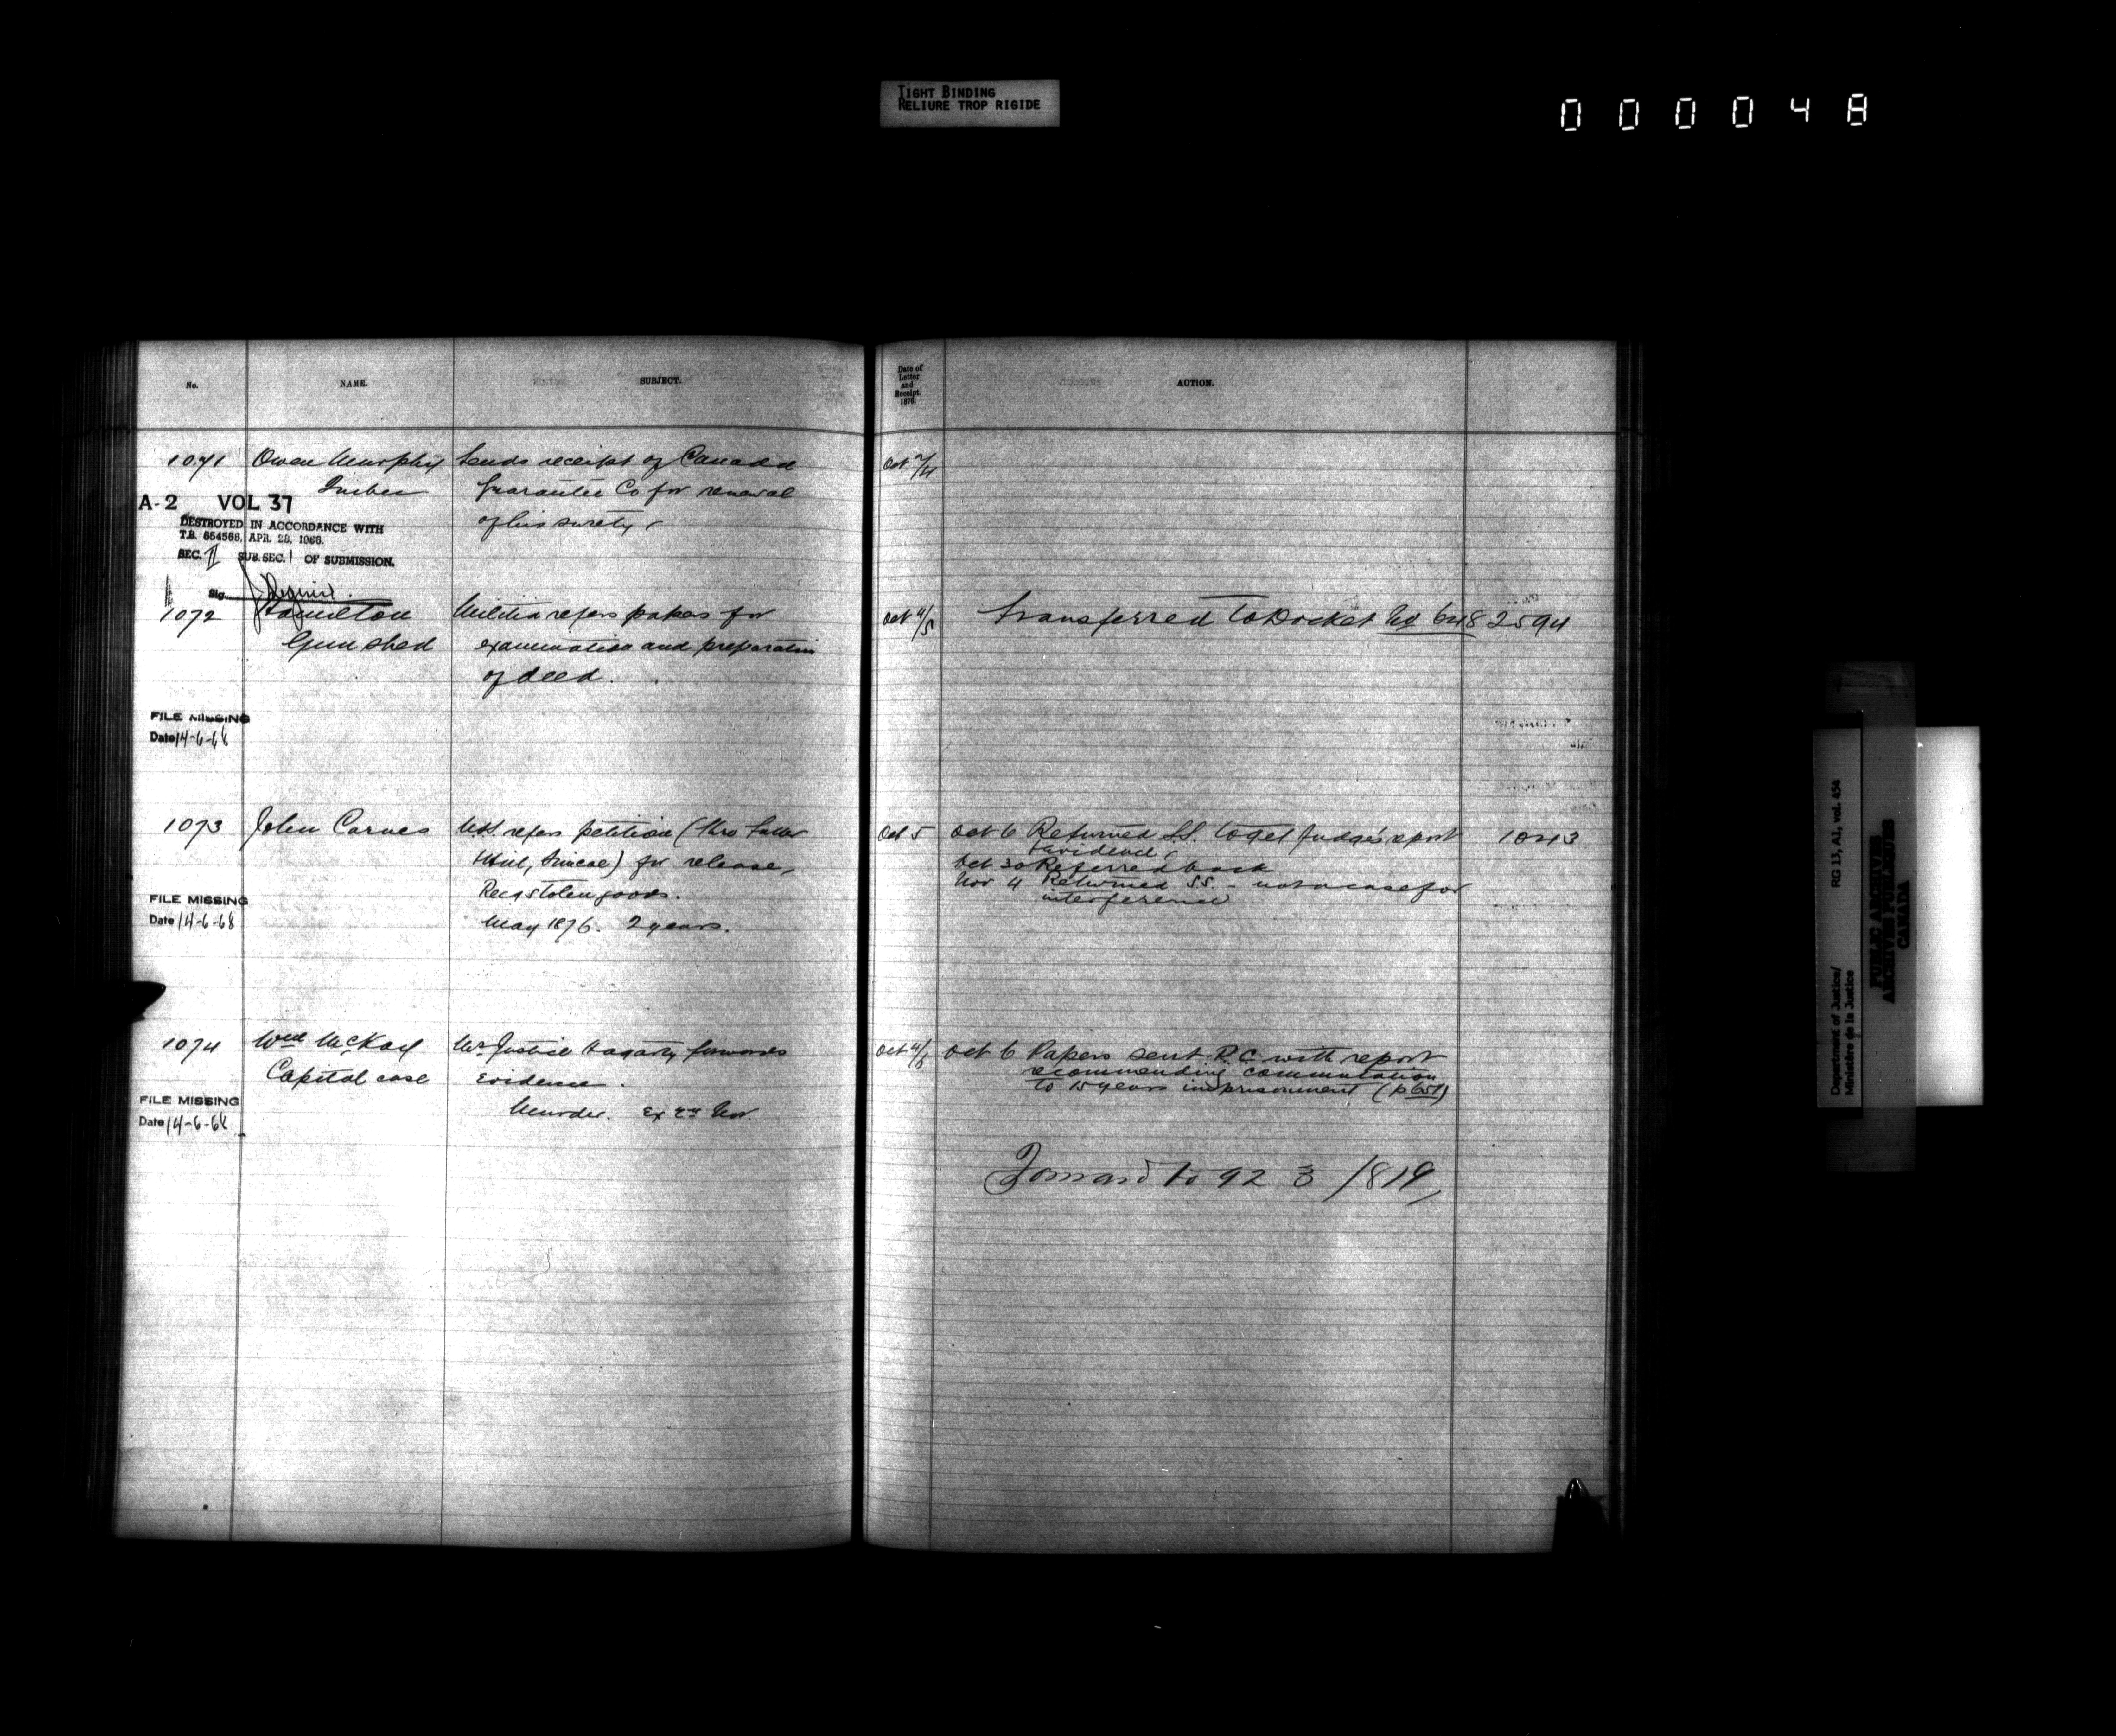 TIGHT BINDING
RELIURE TROP RIGIDE
000048
No.
NAME.
SUBJECT.
Date of
Letter
and
Receipt.
1876.
ACTION.
1071 Owen Murphy Sends receipt of Canada Oct 2/4
Quebec Guarantee Co for renewal
of his surety
A-2 VOL 37
DESTROYED IN ACCORDANCE WITH
T.B. 654568, APR. 28, 1966.
SEC. II SUB. SEC. 1 OF SUBMISSION.
Sig.
1072 Hamilton Militia refers papers for Oct 4/5 Transferred to Docket No 648 2594
Gun shed examination and preparation
of deed.
FILE MISSING
Date 14-6-68
1073 John Carnes refers petition (thro Oct 5 Oct 6 Returned S.S. to get Judge's report 1043
Simcoe) for release, & evidence,
Oct 30 Referred back
Recg stolen goods. Nov 4 Returned SS - not a case for
interference
May 1876. 2 years.
FILE MISSING
Date 14-6-68
1074 Wm McKay Mr Justice Hagarty forwards Oct 4/5 Oct 6 Papers sent P.C. with report
Capital case evidence. recommending commutation
to 15 years imprisonment (p 651)
Murder. Ex Nov.
FILE MISSING
Date 14-6-68
Forward to 92 3 /819,
Department of Justice/ RG 13, A1, vol. 454
Ministère de la Justice
PUBLIC ARCHIVES
ARCHIVES PUBLIQUES
CANADA